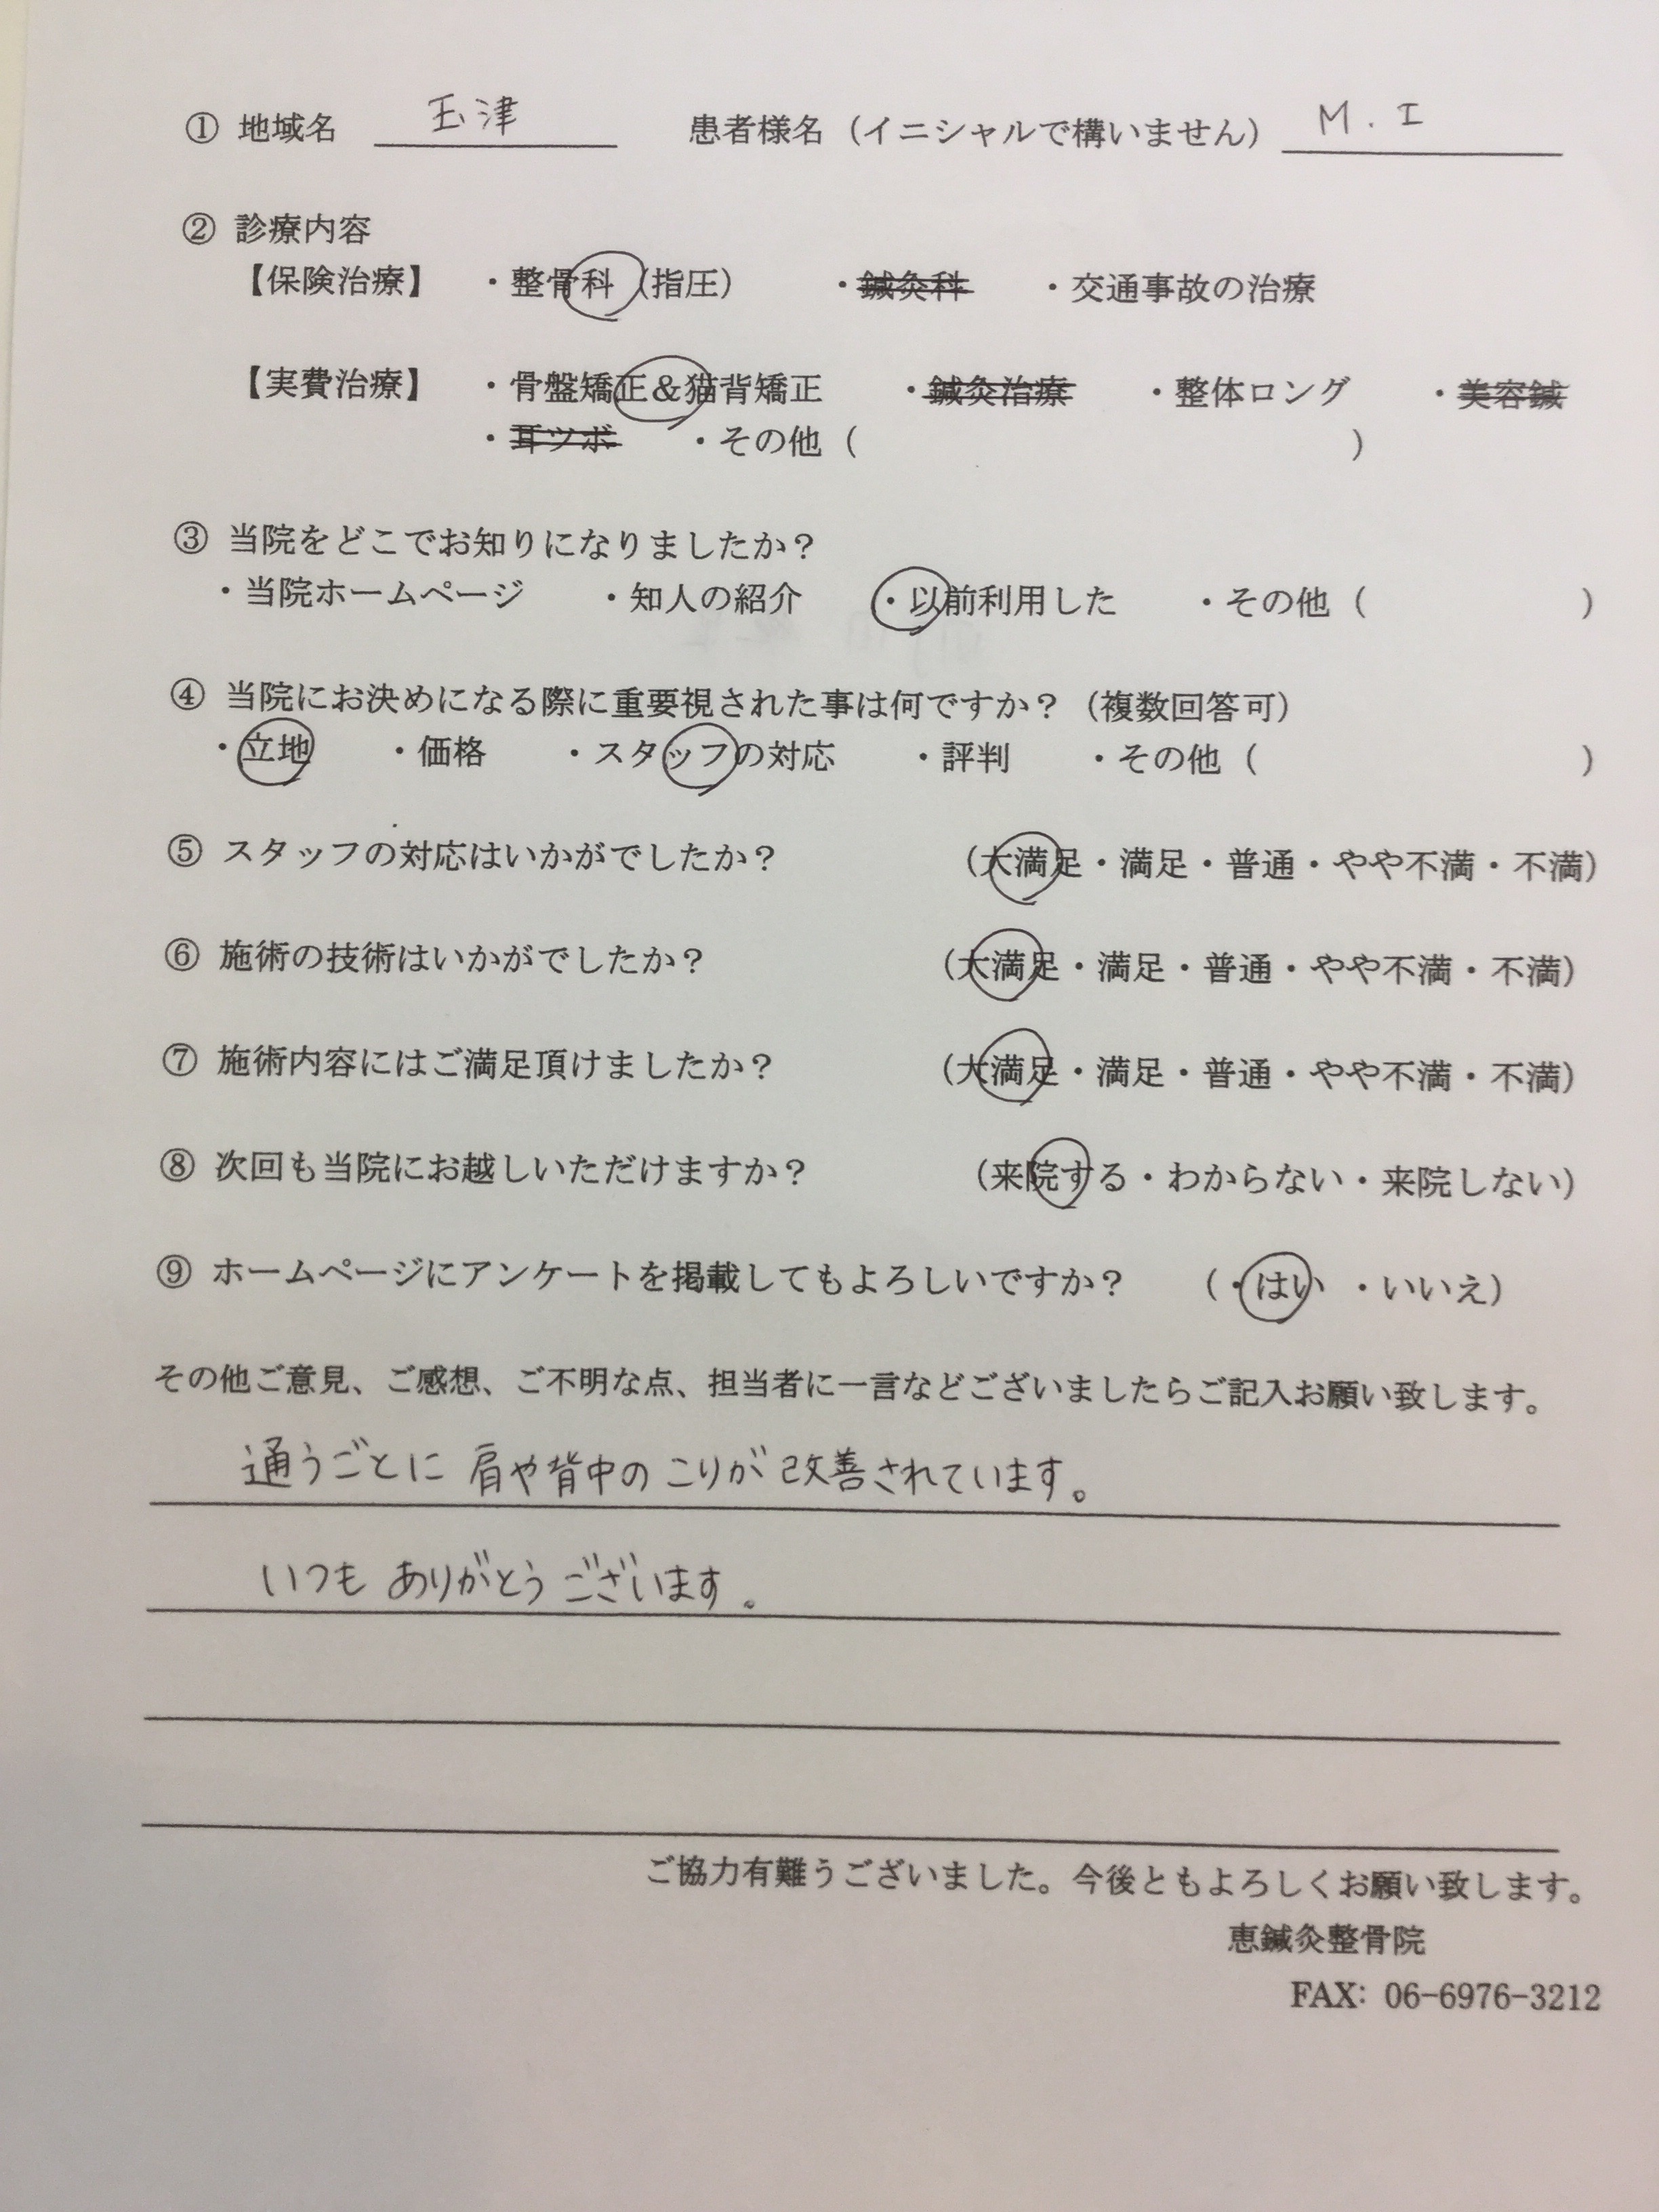 ① 地域名 玉津 患者様名（イニシャルで構いません） M.I
② 診療内容
【保険治療】 ・整骨科（指圧） ・鍼灸科 ・交通事故の治療
【実費治療】 ・骨盤矯正＆猫背矯正 ・鍼灸治療 ・整体ロング ・美容鍼
・耳ツボ ・その他（ ）
③ 当院をどこでお知りになりましたか？
・当院ホームページ ・知人の紹介 ・以前利用した ・その他（ ）
④ 当院にお決めになる際に重要視された事は何ですか？（複数回答可）
・立地 ・価格 ・スタッフの対応 ・評判 ・その他（ ）
⑤ スタッフの対応はいかがでしたか？ （大満足・満足・普通・やや不満・不満）
⑥ 施術の技術はいかがでしたか？ （大満足・満足・普通・やや不満・不満）
⑦ 施術内容にはご満足頂けましたか？ （大満足・満足・普通・やや不満・不満）
⑧ 次回も当院にお越しいただけますか？ （来院する・わからない・来院しない）
⑨ ホームページにアンケートを掲載してもよろしいですか？ （・はい ・いいえ）
その他ご意見、ご感想、ご不明な点、担当者に一言などございましたらご記入お願い致します。
通うごとに 肩や背中の こりが 改善されています。
いつも ありがとう ございます。
ご協力有難うございました。今後ともよろしくお願い致します。
恵鍼灸整骨院
FAX: 06-6976-3212